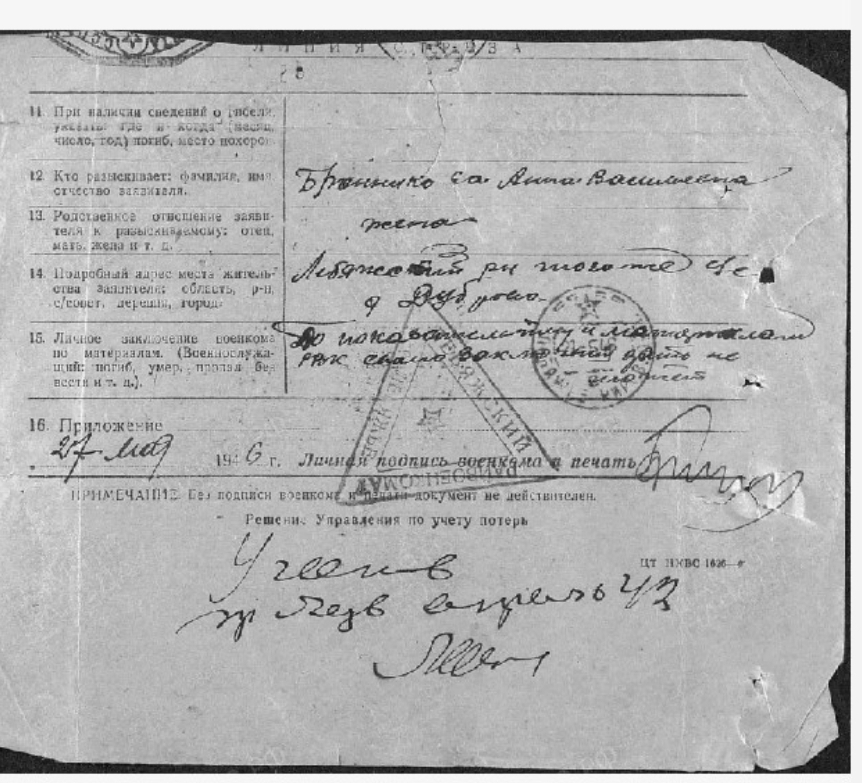 ЛИНИЯ ОТРЕЗА
11. При наличии сведений о гибели,
указать где и когда (месяц,
число, год) погиб, место похорон
12. Кто разыскивает: фамилия, имя
отчество заявителя.
Бронникова Анна Васильевна
13. Родственное отношение заяви-
теля к разыскиваемому: отец,
мать, жена и т. д.
жена
14. Подробный адрес места житель-
ства заявителя: область, р-н,
с/совет, деревня, город.
Лебяжский рн того же с/с
д Дуброво
15. Личное заключение военкома
по материалам. (Военнослужа-
щий: погиб, умер, пропал без
вести и т. д.).
По и материалам
РВК своего заключения дать не
может
16. Приложение
27 мая 1946 г. Личная подпись военкома и печать
ЛЕБЯЖСКИЙ
РАЙВОЕНКОМАТ
ПРИМЕЧАНИЕ. Без подписи военкома и печати документ не действителен.
Решение Управления по учету потерь
ЦТ НКВС 1626
Учесть
пр безв апрель 43